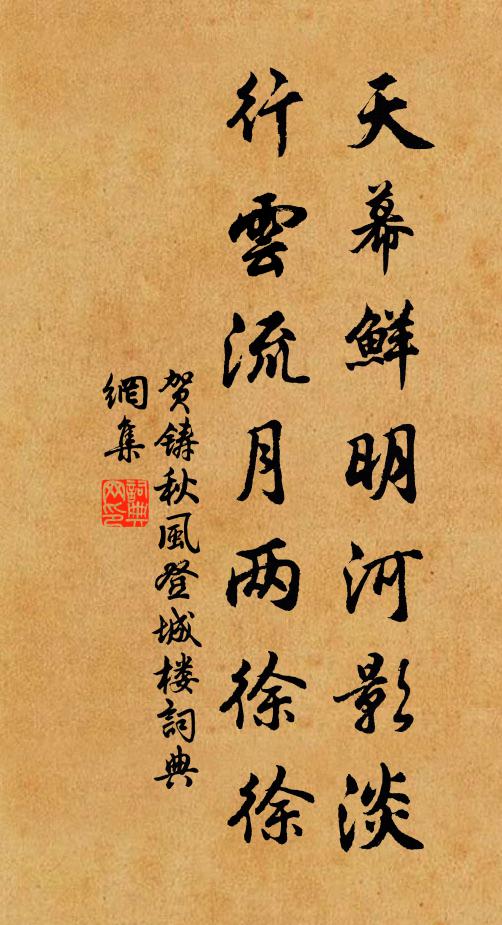 天幕鮮明河影淡
行雲流月两徐徐
贺鑄秋風登城楼詞典
網集
詞典
网印